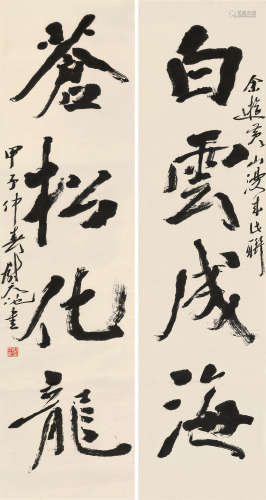 白雲成海
余遊黃山此聯
蒼松化龍
甲子仲春尉天池書